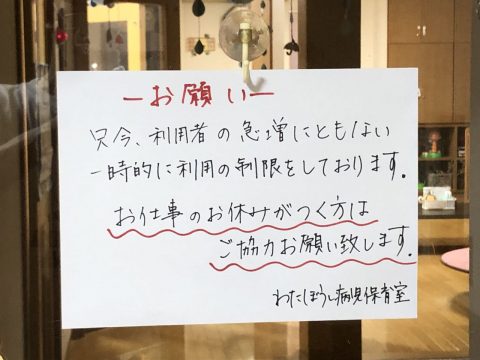 ーお願いー
只今、利用者の急増にともない
一時的に利用の制限をしております.
お仕事のお休みがつく方は
ご協力お願い致します.
わたぼうし病児保育室